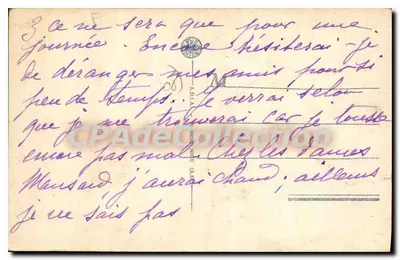 3 ce ne sera que pour une
journée. Encore hésiterai-je
de déranger mes amis pour si
peu de temps. Je verrai selon
que je me trouverai car je tousse
encore pas mal. Chez les dames
Mansard j'aurai chaud; ailleurs
je ne sais pas
CPADeCollection